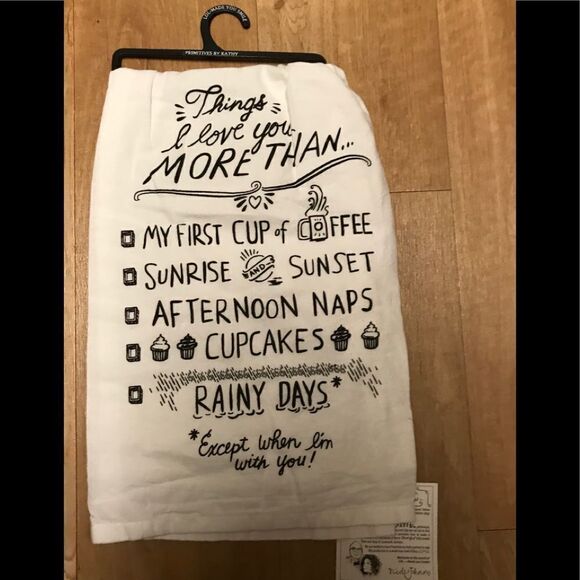 LOL MADE YOU SMILE
PRIMITIVES BY KATHY
Things
I love you
MORE THAN...
MY FIRST CUP of COFFEE
SUNRISE AND SUNSET
AFTERNOON NAPS
CUPCAKES
RAINY DAYS*
*Except when I'm
with you!